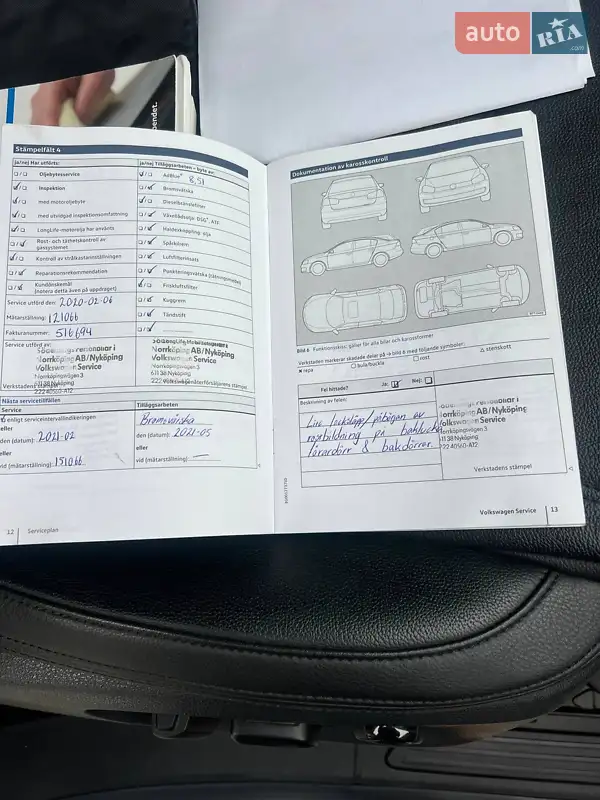 auto RIA
.com
pendet.
Stämpelfält 4
ja/nej Har utförts:
Oljebytesservice
Inspektion
med motoroljebyte
med utvidgad inspektionsomfattning
LongLife-motorolja har använts
Rost- och täthetskontroll av
gassystemet
Kontroll av strålkastarinställningen
Reparationsrekommendation
Kundönskemål
(notera detta även på uppdraget)
Service utförd den: 2020-02-06
Mätarställning: 121066
Fakturanummer: 516694
Service utförd av:
Norrköping AB/Nyköping
Volkswagen Service
Norrköpingsvägen 3
611 38 Nyköping
222 40560-A12
Verkstadens stämpel
ja/nej Tilläggsarbeten – byte av:
AdBlue® 8,5l
Bromsvätska
Dieselbränslefilter
Växellådsolja: DSG®, ATF
Haldexkoppling: olja
Spårkörem
Luftfilterinsats
Punkteringsvätska (tätningsmedel)
Friskluftsfilter
Kuggrem
Tändstift
Norrköping AB/Nyköping
Volkswagen Service
Norrköpingsvägen 3
611 38 Nyköping
Nästa servicetillfällen
Service
enligt serviceintervallindikeringen
eller
den (datum): 2021-02
eller
vid (mätarställning): 151066
Tilläggsarbeten
Bromsvätska
den (datum): 2021-05
eller
vid (mätarställning): —
12 Serviceplan
Dokumentation av karosskontroll
Bild 6 Funktionsskiss: gäller för alla bilar och karossformer
Verkstaden markerar skadade delar på → bild 6 med följande symboler:
× repa
○ bula/buckla
□ rost
△ stenskott
Fel hittade?
Ja:
Nej:
Beskrivning av felen:
Lite lackslägg/påbörjan av
rostbildning på baklucka
förardörr & bakdörrar.
Norrköping AB/Nyköping
Volkswagen Service
Norrköpingsvägen 3
611 38 Nyköping
222 40560-A12
Verkstadens stämpel
Volkswagen Service 13